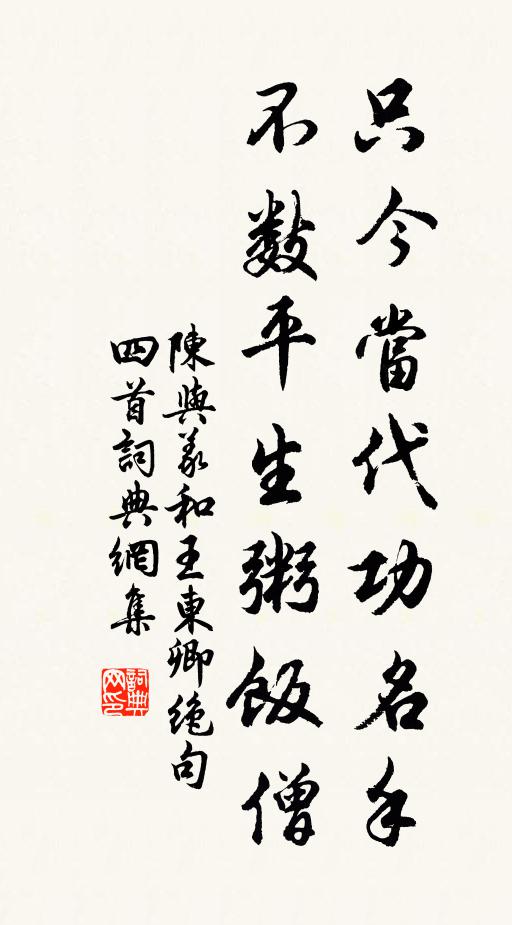 只今當代功名手
不數平生粥飯僧
陳與義和王東卿絶句
四首詞典網集
詞典網印